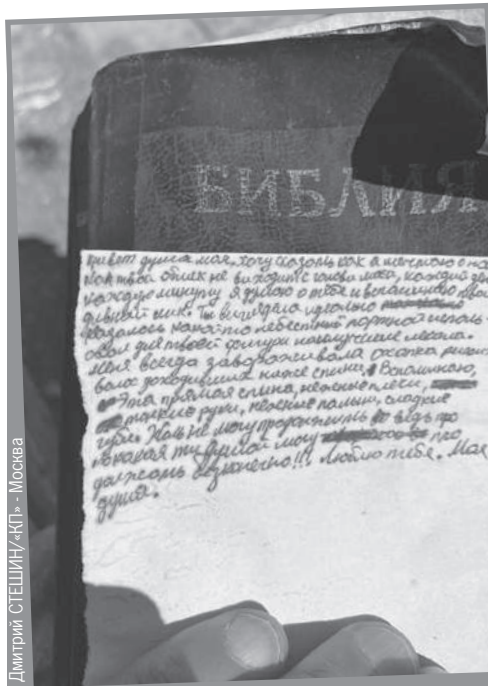 БИБЛИЯ
Привет душа моя, хочу сказать как я мечтаю о
как твой облик не виходит с голови каждий
каждую минуту я думаю о тебе и вспоминаю
дивний лик. Ты виглядела идеально
казалось какой то небесний портной исполь-
овал для твоей фигури наилучшие лекала.
меня всегда завораживала охапка
волос доходивших ниже спини. Вспоминаю,
Эта прямая спина, нежние плечи,
тонкие руки, нежние пальци, сладкие
губи. Жаль не могу продолжить ведь про
какая ти могу про
должать безконечно!!! Люблю тебя. Моя
душа.
Дмитрий СТЕШИН/«КП» - Москва